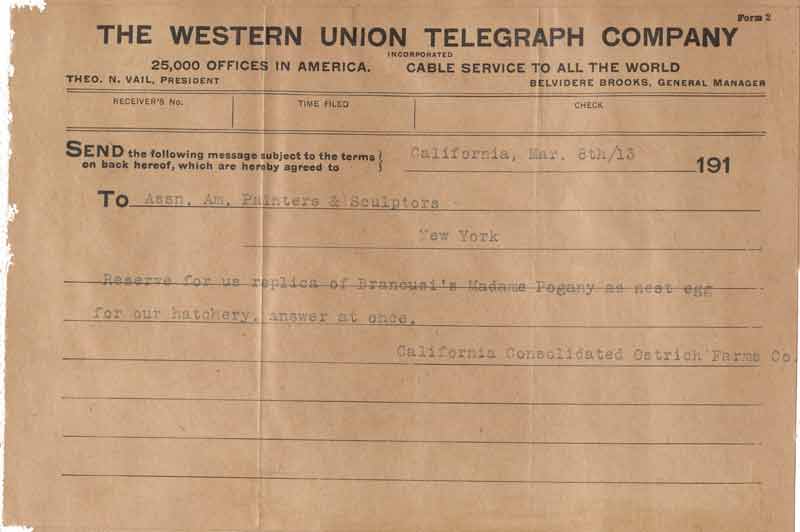 Form 2
THE WESTERN UNION TELEGRAPH COMPANY
INCORPORATED
25,000 OFFICES IN AMERICA. CABLE SERVICE TO ALL THE WORLD
THEO. N. VAIL, PRESIDENT BELVIDERE BROOKS, GENERAL MANAGER
RECEIVER'S No. TIME FILED CHECK
SEND the following message subject to the terms
on back hereof, which are hereby agreed to
California, Mar. 8th/13 191
To Assn. Am. Painters & Sculptors
New York
Reserve for us replica of Brancusi's Madame Pogany as nest egg
for our hatchery, answer at once.
California Consolidated Ostrich Farms Co.